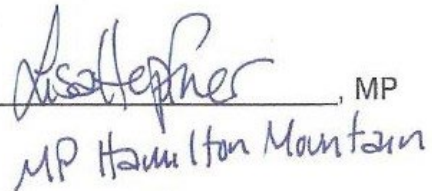 Lisa Hepfner, MP
MP Hamilton Mountain